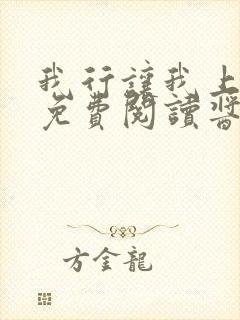 我行讓我上
免費閱讀醬
方金龍